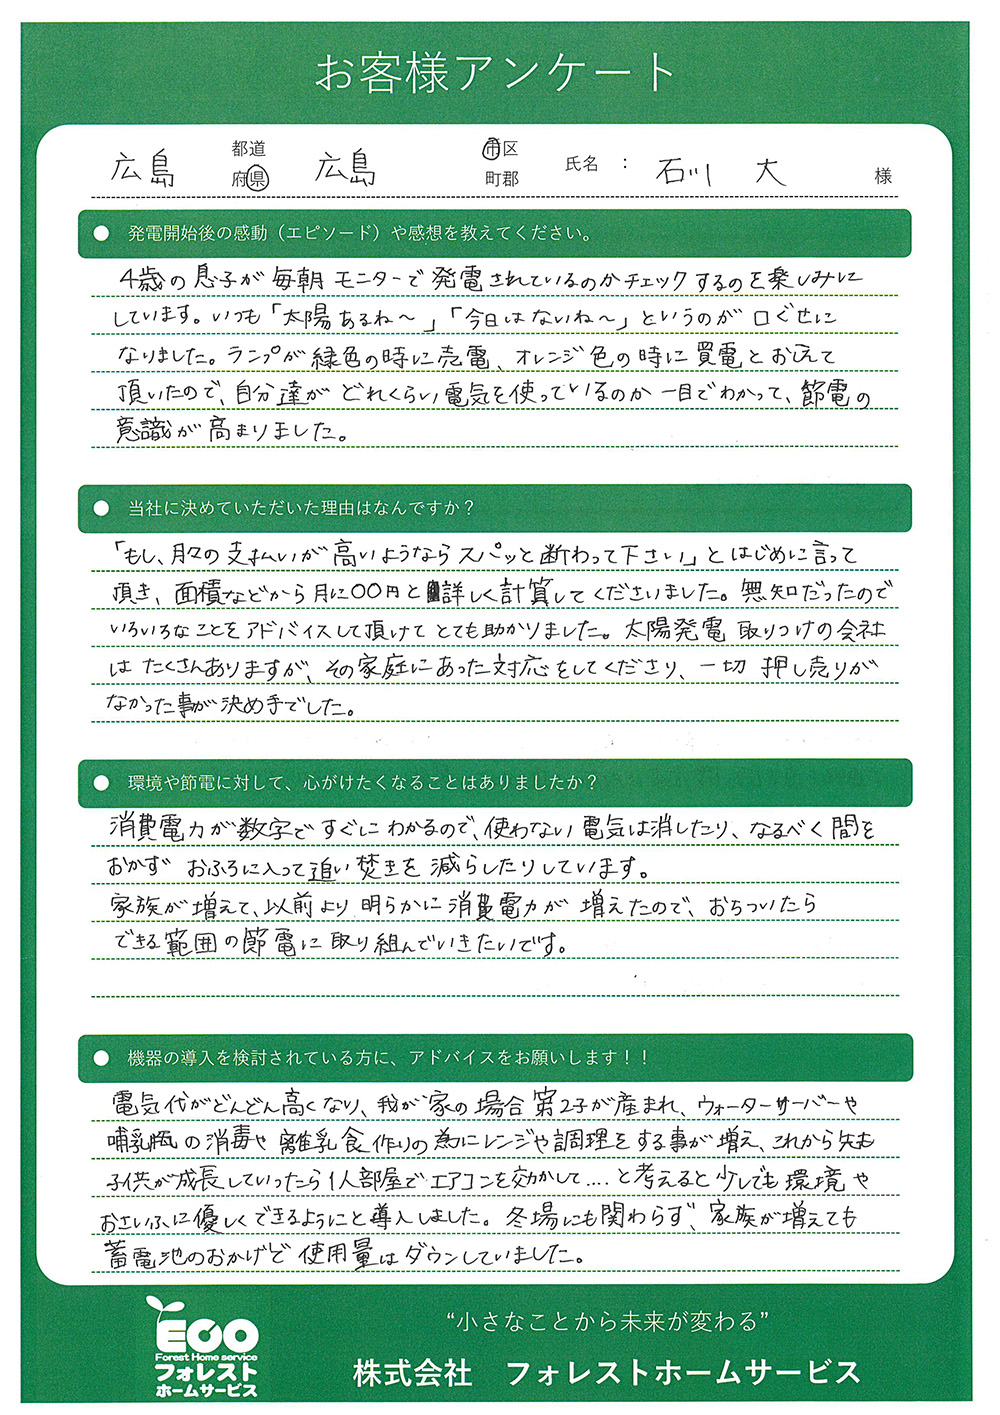 お客様アンケート
広島 都道府県 広島 市区町郡 氏名 : 石川 大 様
● 発電開始後の感動（エピソード）や感想を教えてください。
4歳の息子が毎朝モニターで発電されているのかチェックするのを楽しみに
しています。いつも「太陽あるね〜」「今日はないね〜」というのが口ぐせに
なりました。ランプが緑色の時に売電、オレンジ色の時に買電とおしえて
頂いたので、自分達がどれくらい電気を使っているのか一目でわかって、節電の
意識が高まりました。
● 当社に決めていただいた理由はなんですか？
「もし、月々の支払いが高いようならスパッと断わって下さい」とはじめに言って
頂き、面積などから月に〇〇円と詳しく計算してくださいました。無知だったので
いろいろなことをアドバイスして頂けてとても助かりました。太陽発電取りつけの会社
はたくさんありますが、その家庭にあった対応をしてくださり、一切押し売りが
なかった事が決め手でした。
● 環境や節電に対して、心がけたくなることはありましたか？
消費電力が数字ですぐにわかるので、使わない電気は消したり、なるべく間を
おかずおふろに入って追い焚きを減らしたりしています。
家族が増えて、以前より明らかに消費電力が増えたので、おちついたら
できる範囲の節電に取り組んでいきたいです。
● 機器の導入を検討されている方に、アドバイスをお願いします！！
電気代がどんどん高くなり、我が家の場合第2子が産まれ、ウォーターサーバーや
哺乳瓶の消毒や離乳食作りの為にレンジや調理をする事が増え、これから先も
子供が成長していったら1人部屋でエアコンを効かして....と考えると少しでも環境や
おさいふに優しくできるようにと導入しました。冬場にも関わらず、家族が増えても
蓄電池のおかげで使用量はダウンしていました。
ECO
Forest Home service
フォレスト
ホームサービス
“小さなことから未来が変わる”
株式会社 フォレストホームサービス